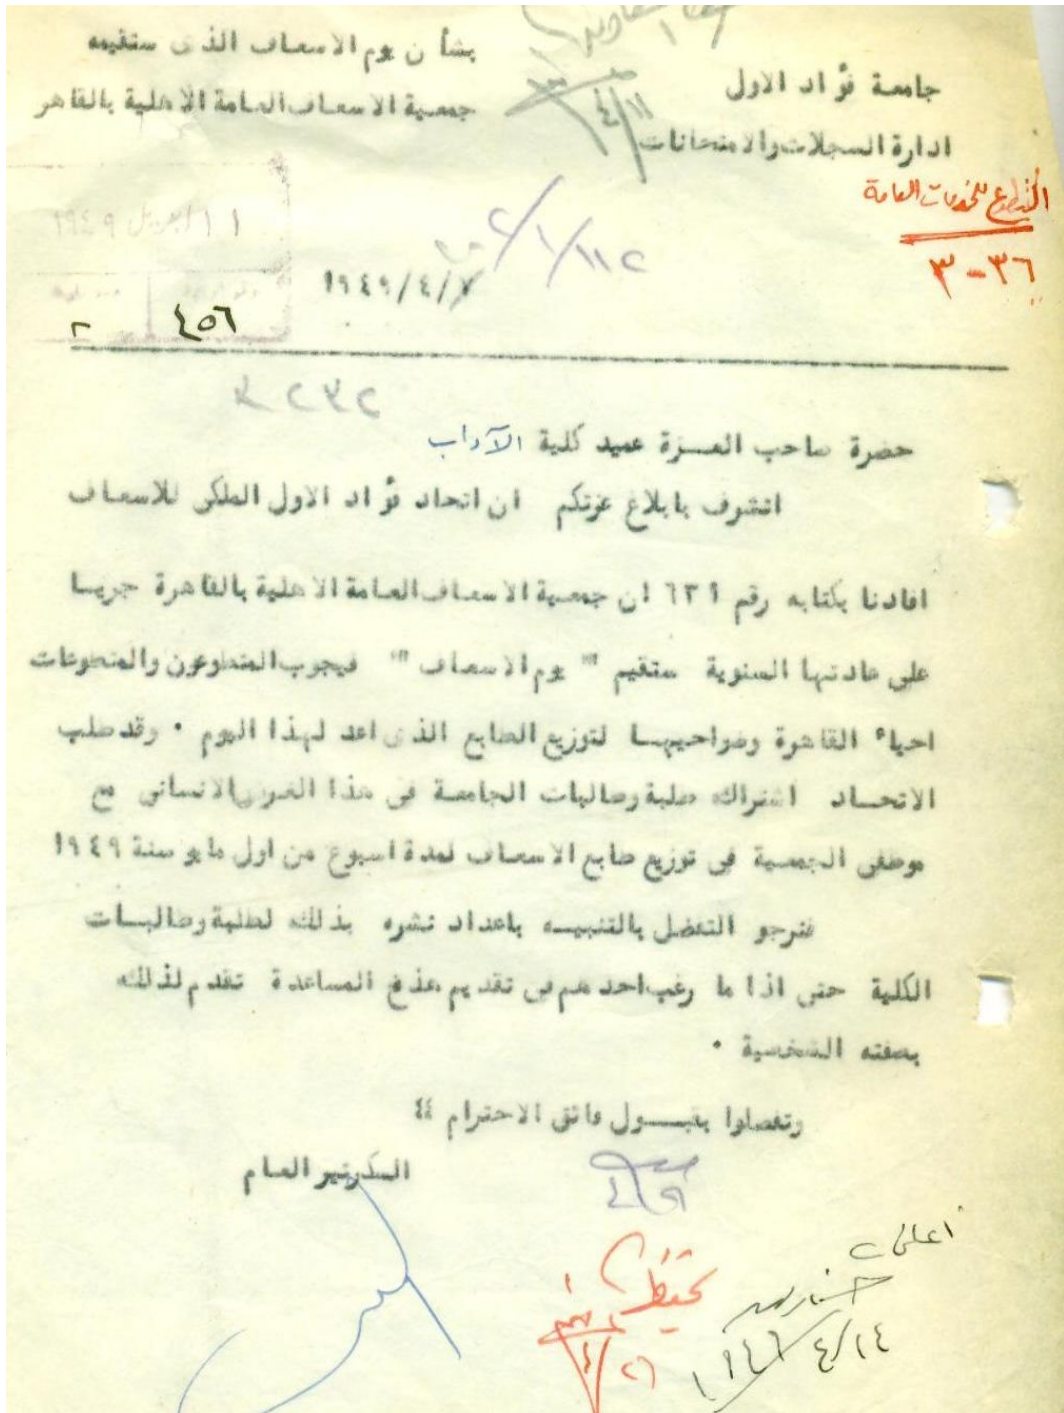 جامعة فؤاد الاول
ادارة السجلات والامتحانات
بشأن يوم الاسعاف الذى ستقيمه
جمعية الاسعاف العامة الاهلية بالقاهر
١١/٤
التطوع للخدمات العامة
٣٦-٣
١١ ابريل ١٩٤٩
١٩٤٩/٤/٧
٤٥٦
حضرة صاحب العزة عميد كلية الآداب
اتشرف بابلاغ عزتكم ان اتحاد فؤاد الاول الملكى للاسعاف
افادنا بكتابه رقم ٦٣١ ان جمعية الاسعاف العامة الاهلية بالقاهرة جريا
على عادتها السنوية ستقيم " يوم الاسعاف " فيجوب المتطوعون والمتطوعات
احياء القاهرة وضواحيها لتوزيع الطابع الذى اعد لهذا اليوم ٠ وقد طلب
الاتحاد اشتراك طلبة وطالبات الجامعة فى هذا الغرض الانسانى مع
موظفى الجمعية فى توزيع طابع الاسعاف لمدة اسبوع من اول مايو سنة ١٩٤٩
فنرجو التفضل بالتنبيه باعداد نشره بذلك لطلبة وطالبات
الكلية حتى اذا ما رغب احدهم فى تقديم هذه المساعدة تقدم لذلك
بصفته الشخصية ٠
وتفضلوا بقبول فائق الاحترام
السكرتير العام
يحفظ
٢٦/٤
١٤/٤